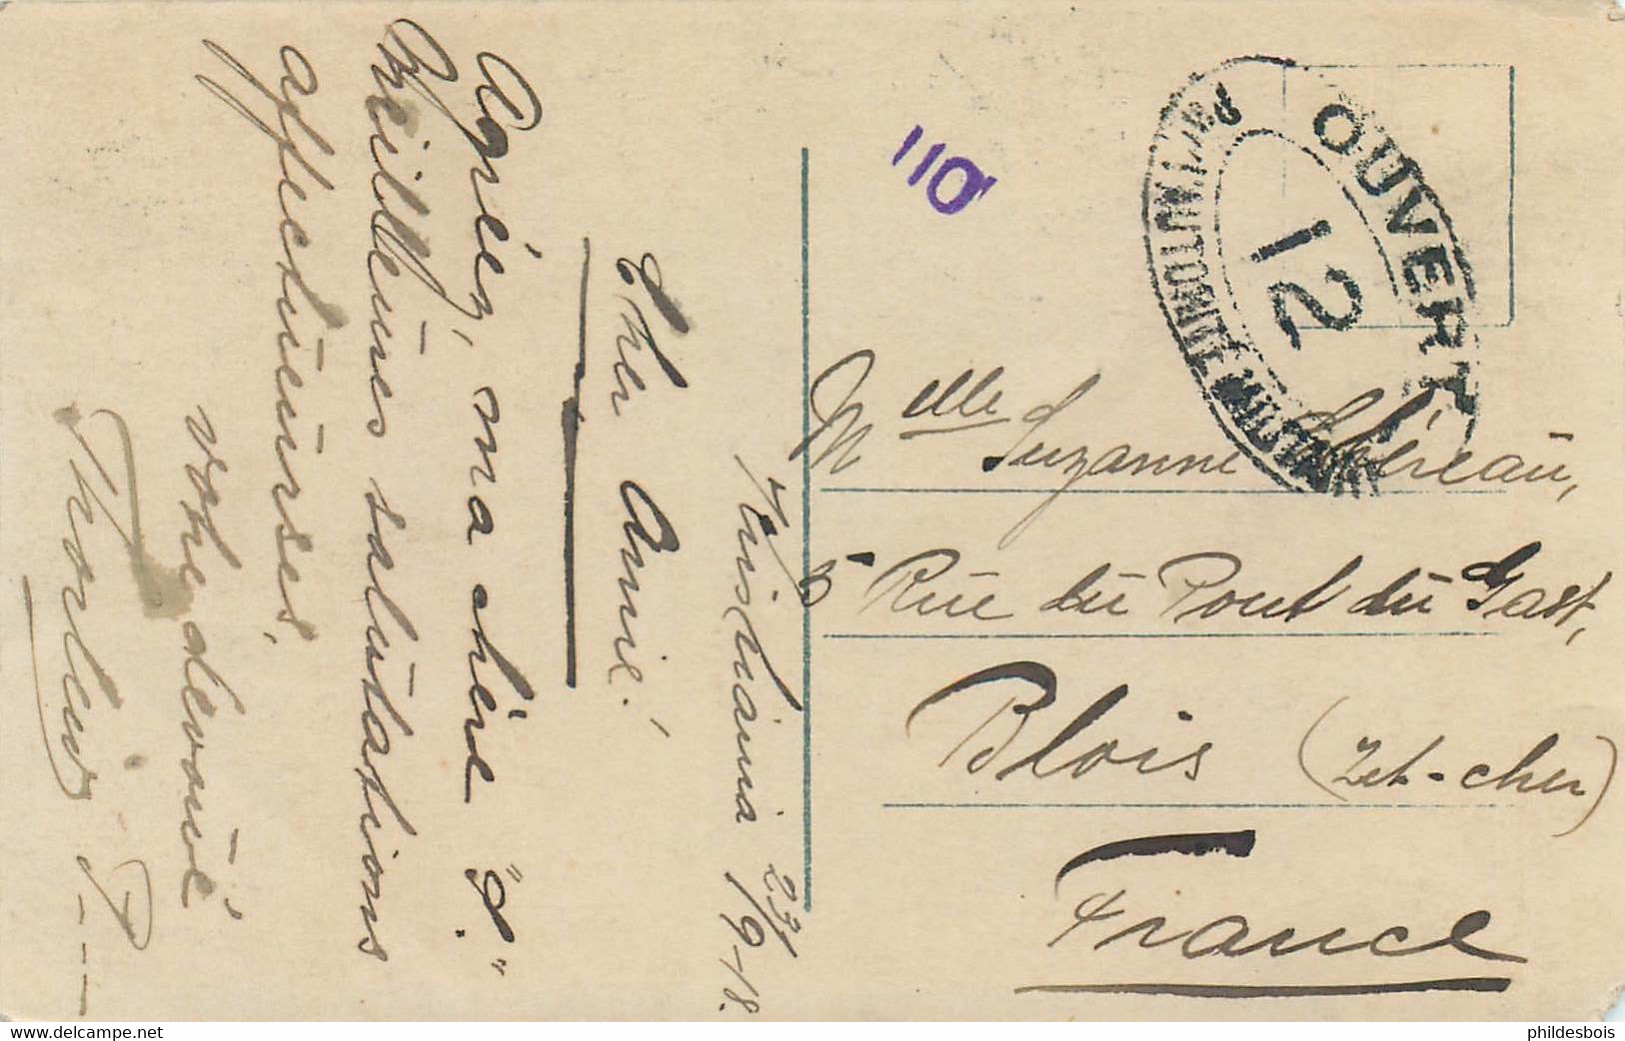 Kristiania 23/9-18.
Cher Amie!
Agréez, ma chère "S."
Meilleures salutations
affectueuses,
votre devoué
Thorleif P---
110
OUVERT
12
PAR L'AUTORITÉ MILITAIRE
Melle Suzanne Chéreau,
5 Rue du Pont du Gast,
Blois (Let-cher)
France
www.delcampe.net
phildesbois